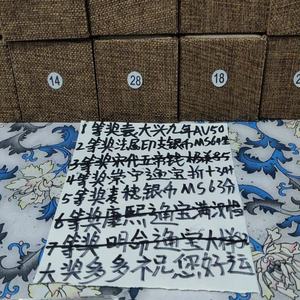 14
28
18
1等奖袁大头九年AU50
2等奖法属印支银币MS64
3等奖宋代五帝钱 85
4等奖崇宁通宝折十
5等奖麦穗银币MS63分
6等奖康熙通宝满汉
7等奖明台通宝大样
大奖多多祝您好运